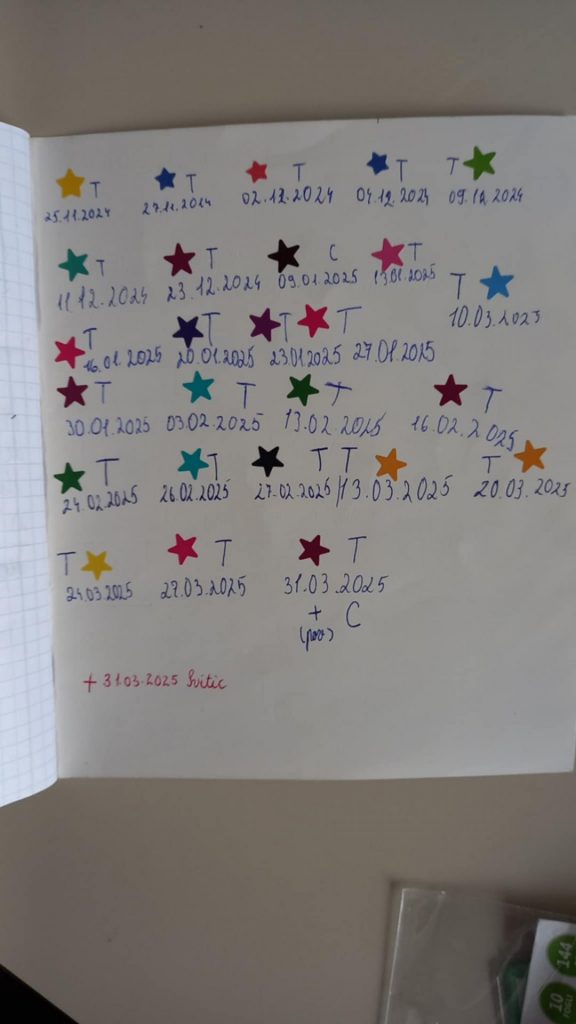 T T T T T
25.11.2024 27.11.2024 02.12.2024 04.12.2024 09.12.2024
T T C T T
11.12.2024 23.12.2024 09.01.2025 13.01.2025 10.03.2025
T T T T
16.01.2025 20.01.2025 23.01.2025 27.01.2025
T T T T
30.01.2025 03.02.2025 13.02.2025 16.02.2025
T T T T T
24.02.2025 26.02.2025 27.02.2025 13.03.2025 20.03.2025
T T T
24.03.2025 27.03.2025 31.03.2025
+ C
+ 31.03.2025
144
10
FOGLI